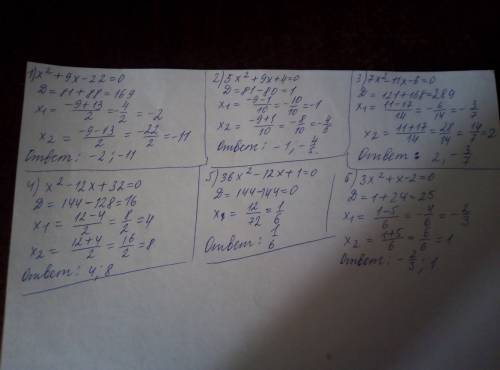 1) x² + 9x - 22 = 0
D = 81 + 88 = 169
x₁ = (-9+13)/2 = 4/2 = -2
x₂ = (-9-13)/2 = -22/2 = -11
Ответ: -2; -11
2) 5x² + 9x + 4 = 0
D = 81 - 80 = 1
x₁ = (-9-1)/10 = -10/10 = -1
x₂ = (-9+1)/10 = -8/10 = -4/5
Ответ: -1; -4/5
3) 7x² - 11x - 6 = 0
D = 121 + 168 = 289
x₁ = (11-17)/14 = -6/14 = -3/7
x₂ = (11+17)/14 = 28/14 = 14/7 = 2
Ответ: 2, -3/7
4) x² - 12x + 32 = 0
D = 144 - 128 = 16
x₁ = (12-4)/2 = 8/2 = 4
x₂ = (12+4)/2 = 16/2 = 8
Ответ: 4; 8
5) 36x² - 12x + 1 = 0
D = 144 - 144 = 0
x = 12/72 = 1/6
Ответ: 1/6
6) 3x² + x - 2 = 0
D = 1 + 24 = 25
x₁ = (1-5)/6 = -4/6 = -2/3
x₂ = (1+5)/6 = 6/6 = 1
Ответ: -2/3; 1